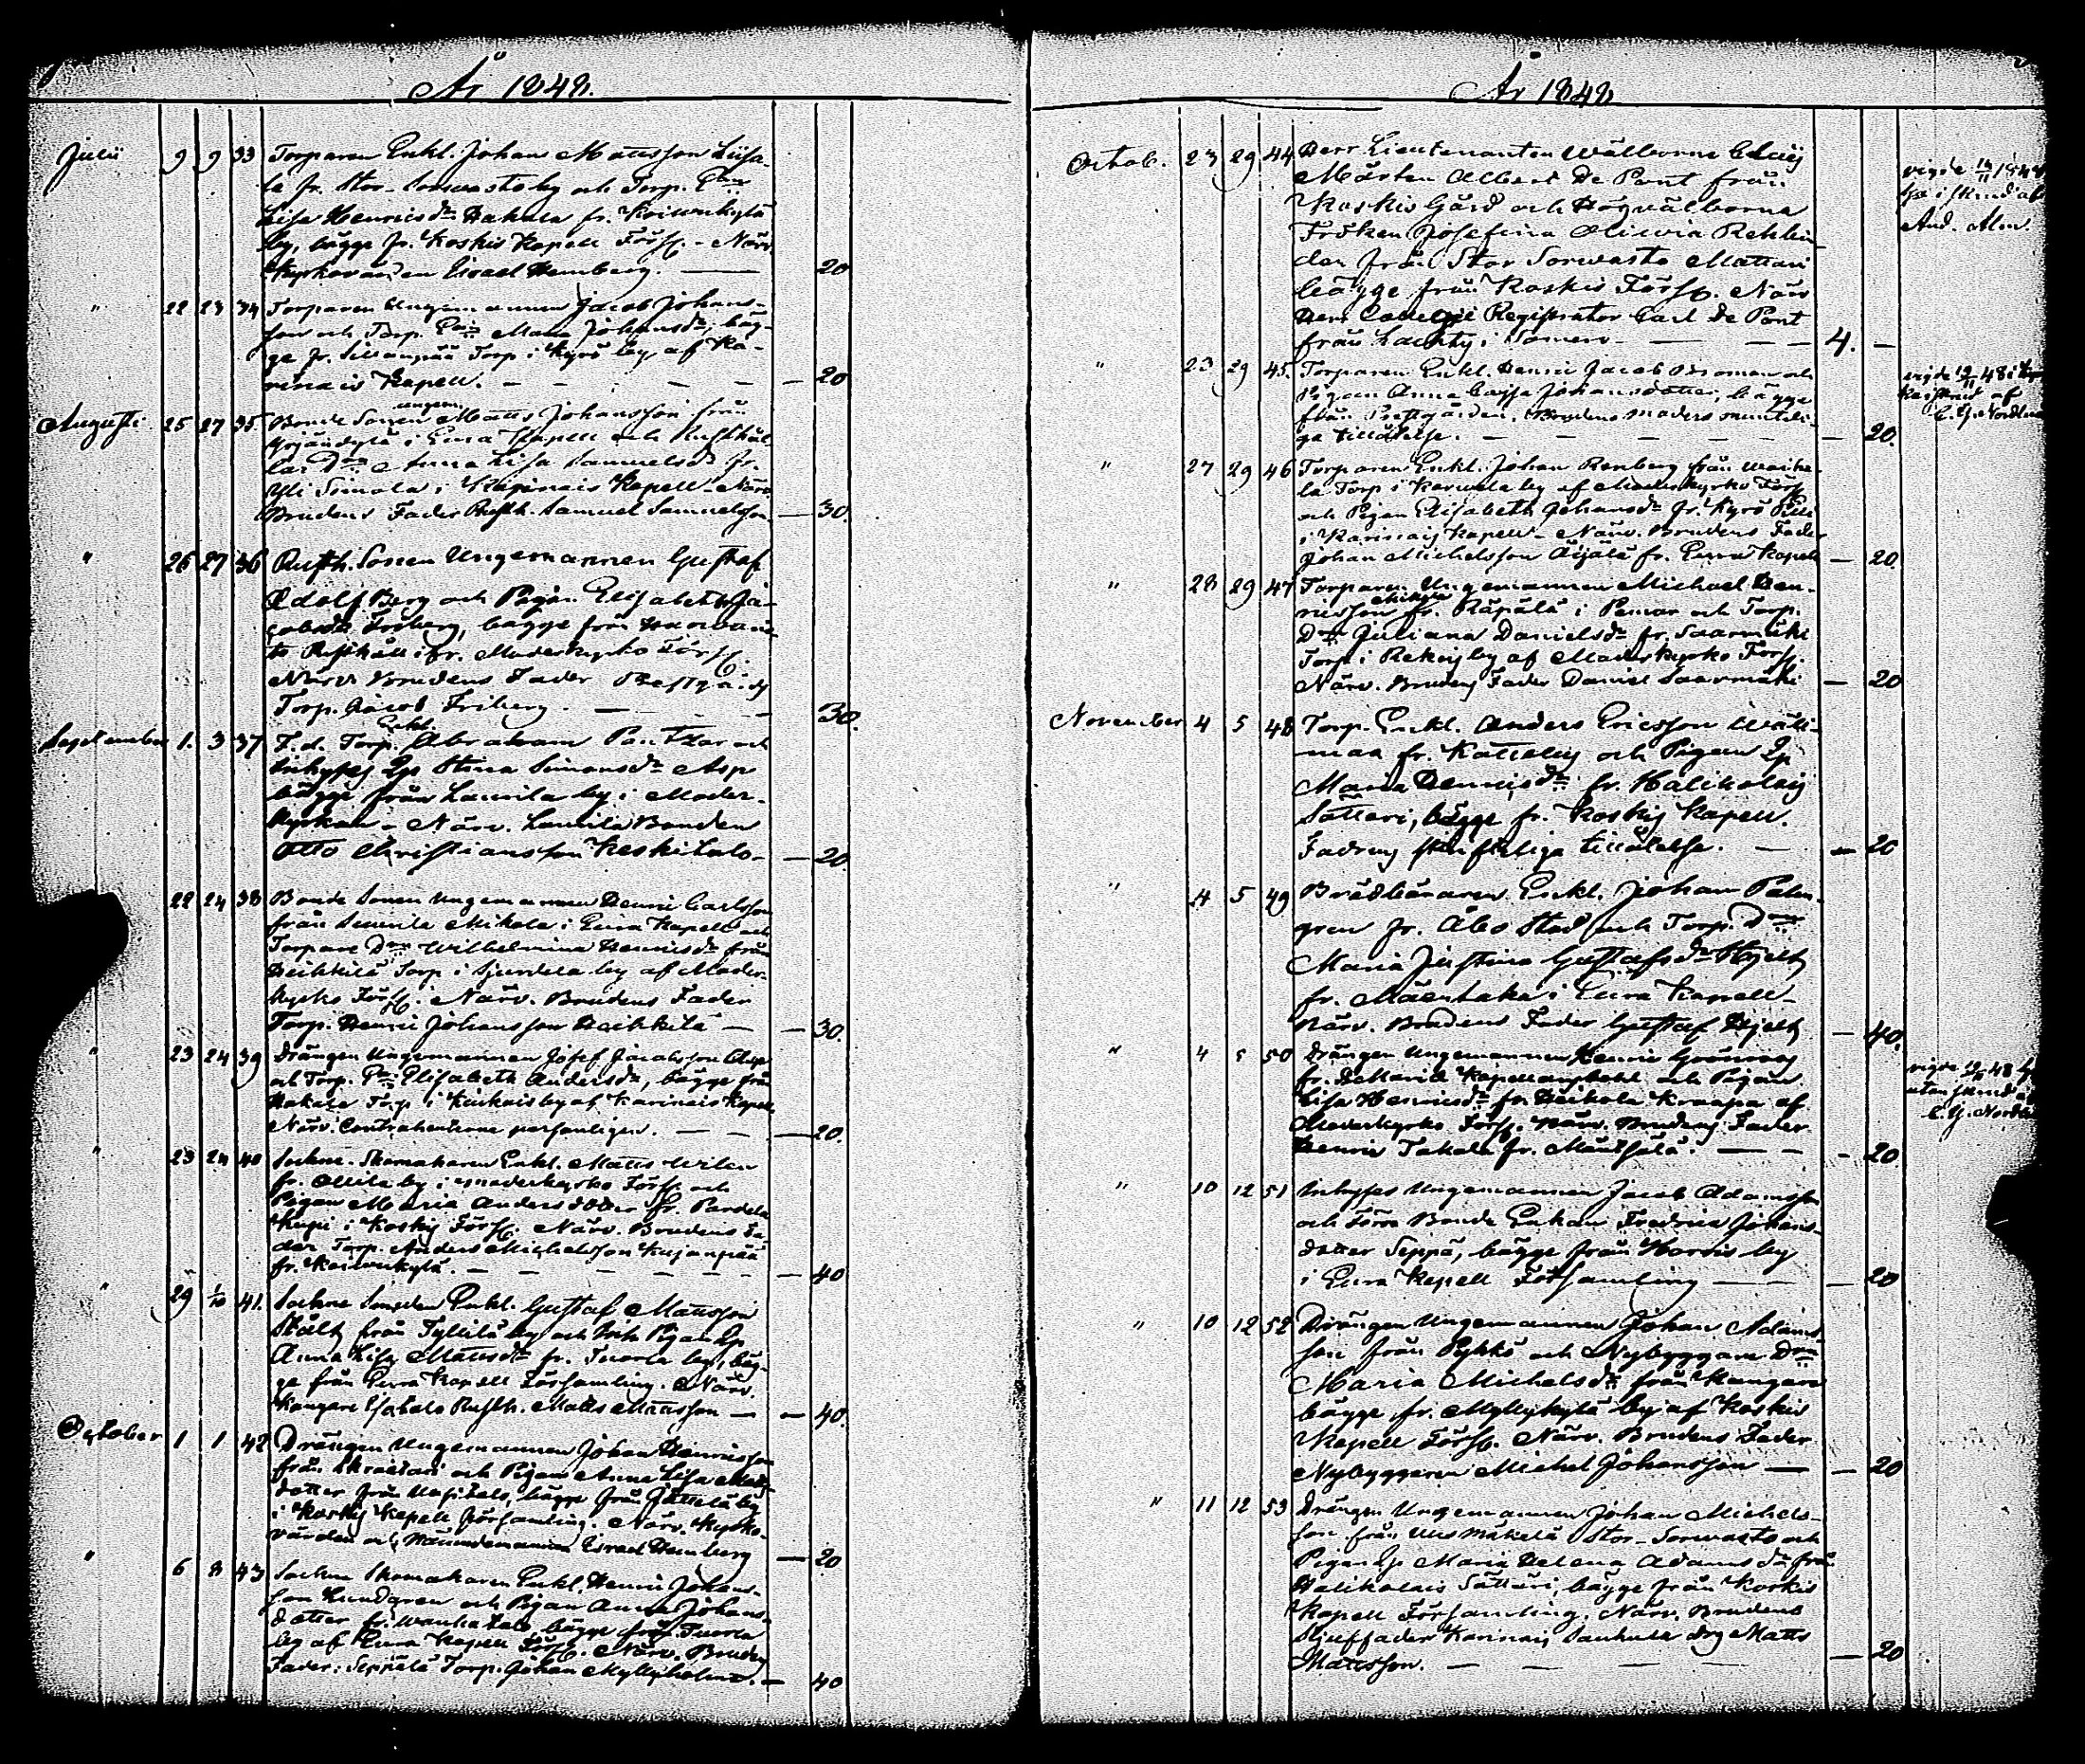 År 1848.
Julii 9 9 33 Torparen Enkl. Johan Mattsson Liisa-
la fr. Stor-Sorvasto by och Torp. Enk.
Lisa Henricsdr Hakala fr. Koivukylä
by, bägge fr. Koskis Kapell Förs. - Närv.
Kyrkovärden Israel Hemberg. — 20
" 22 23 34 Torparen Ungem annen Jacob Johans-
son och Torp. Pig. Maria Johansdr, bäg-
ge fr. Sillanpää Torp i Kyrö by af Ka-
rinais Kapell. — — 20
Augusti 25 27 35 Bonde Sonen ungem. Matts Johansson från
i Eura Kapell och Rusthål-
lar Dr Anna Lisa Samuelsdr fr.
Yli Simola i Karinais Kapell - Närv.
Brudens Fader Rusth. Samuel Samuelsson. — 30.
" 26 27 36 Rusth. Sonen Ungemannen Gustaf
Adolf Berg och Pigan Elisabeth Ja-
cobsdr Friberg, bägge från
Rusthåll i fr. Moderkyrko Förs.
Närv. Brudens Fader Prestgårds
Torp. Jacob Friberg. — 30.
September 1. 3 37 F.d. Torp. Enkl. Abraham Pantzar och
Inhyses Qp Stina Simonsdr Asp
bägge från Laurila by i Moder-
kyrkan - Närv. Laurila Bonden
Otto Christiansson Keskitalo. — 20.
22 24 38 Bonde Sonen Ungemannen Henric Carlsson
från Mikola i Eura Kapell och
Torpare Dr Wilhelmina Henricsdr från
Heikkilä Torp i by af Moder-
kyrko Förs. Närv. Brudens Fader
Torp. Henric Johansson Heikkilä — — 30.
" 23 24 39 Drängen Ungemannen Josef Jacobsson
och Torp. Pig. Elisabeth Andersdr, bägge från
Hakala Torp i by af Karinais Kapell.
Närv. Contrahenterne personligen. — — 20.
" 23 24 40 Sockne Skomakaren Enkl. Matts Wilen
fr. by i Moderkyrko Förs. och
Pigan Maria Andersdotter fr. Pardela
i Koskis Förs. Närv. Brudens Fa-
der Torp. Anders Michelsson Kujanpää
fr. Koivukylä. — — 40
" 29 1/10 41. Sockne Smeden Enkl. Gustaf Mattsson
Stålt från Tyllilä by och Inh. Pigan Qp
Anna Lisa Mattsdr fr. Tuorla by, bäg-
ge från Eura Kapell Församling. Närv.
Kangare Rusth. Matts Mattsson — — 40.
October 1 1 42 Drängen Ungemannen Johan Henricsson
från Skräddari och Pigan Anna Lisa Matts-
dotter från bägge från by
i Koskis Kapell Församling. Närv. Kyrko-
värden och Nämndemannen Israel Hemberg — 20
" 6 8 43 Sockne Skomakaren Enkl. Henric Johans-
son Lundgren och Pigan Anna Johans-
dotter fr. bägge från Tuorla
by af Eura Kapell Förs. Närv. Brudens
Fader: Seppälä Torp. Johan Myllyholm. — 40
År 1848
Octob. 23 29 44 Herr Lieutenanten Wälborne
Mårten Albert De Pont från
Koskis Gård och Högvälborna
Fröken Josefina Olivia Rehbin-
der från Stor Sorvasto Mattari
bägge från Koskis Förs. Närv.
Herr Registrator Carl De Pont
från i Somero — — 4. —
vigde 14/11 1848
And. Alm.
" 23 29 45. Torparen Enkl. Henric Jacobsson och
Pigan Anna Cajsa Johansdotter, bägge
från Prestgården. Brudens moders muntli-
ga tillåtelse. — — 20.
vigde 12/11 48 i
af
C. G. Nordlund
" 27 29 46 Torparen Enkl. Johan Renberg från
Torp i by af Moderkyrko Förs.
och Pigan Elisabeth Johansdr fr. Kyrö
i Karinais Kapell - Närv. Brudens Fader
Johan Michelsson Äijälä fr. Eura Kapell — 20.
" 28 29 47 Torparen Ungemannen Michael Hen-
ricsson fr. Räpälä i Pemar och Torp.
Dr Juliana Danielsdr fr. Saarmäki
Torp i by af Moderkyrko Förs.
Närv. Brudens Fader Daniel Saarmäki — 20
November 4 5 48 Torp. Enkl. Anders Ericsson Wäli-
maa fr. Katteby och Pigan Qp
Maria Henricsdr fr. Halikolais
Säteri, bägge fr. Koskis Kapell.
Fadrens skriftliga tillåtelse. — — 20
" 4 5 49 Brädbäraren Enkl. Johan Palm-
gren fr. Åbo Stad och Torp. Dr
Maria Justina Gustafsdr Hjelt
fr. Mäentaka i Eura Kapell -
Närv. Brudens Fader Gustaf Hjelt — 40.
" 4 5 50 Drängen Ungemannen Henric Grönroos
fr. S:t Mariæ Kapellansbohl och Pigan
Lisa Henricsdr fr. Heikola Knaapa af
Moderkyrko Förs. Närv. Brudens Fader
Henric Takala fr. Mäntsälä. — — 20
vigde 12/11 48
utan
C. G. Nordlund
" 10 12 51 Inhyses Ungemannen Jacob Adamsson
och Förra Bonde Enkan Fredrica Johans-
dotter Seppä, bägge från by
i Eura Kapell Församling — — 20
" 10 12 52 Drängen Ungemannen Johan Adams-
son från och Nybyggare Dr
Maria Michelsdr från Kangare
bägge fr. Myllykylä by af Koskis
Kapell Förs. Närv. Brudens Fader
Nybyggaren Michel Johansson — — 20
" 11 12 53 Drängen Ungemannen Johan Michels-
son från Mäkelä Stor-Sorvasto och
Pigan Qp Maria Helena Adamsdr från
Halikolais Säteri, bägge från Koskis
Kapell Församling. Närv. Brudens
Stjuffader Karinais Matts
Mattsson. — — 20